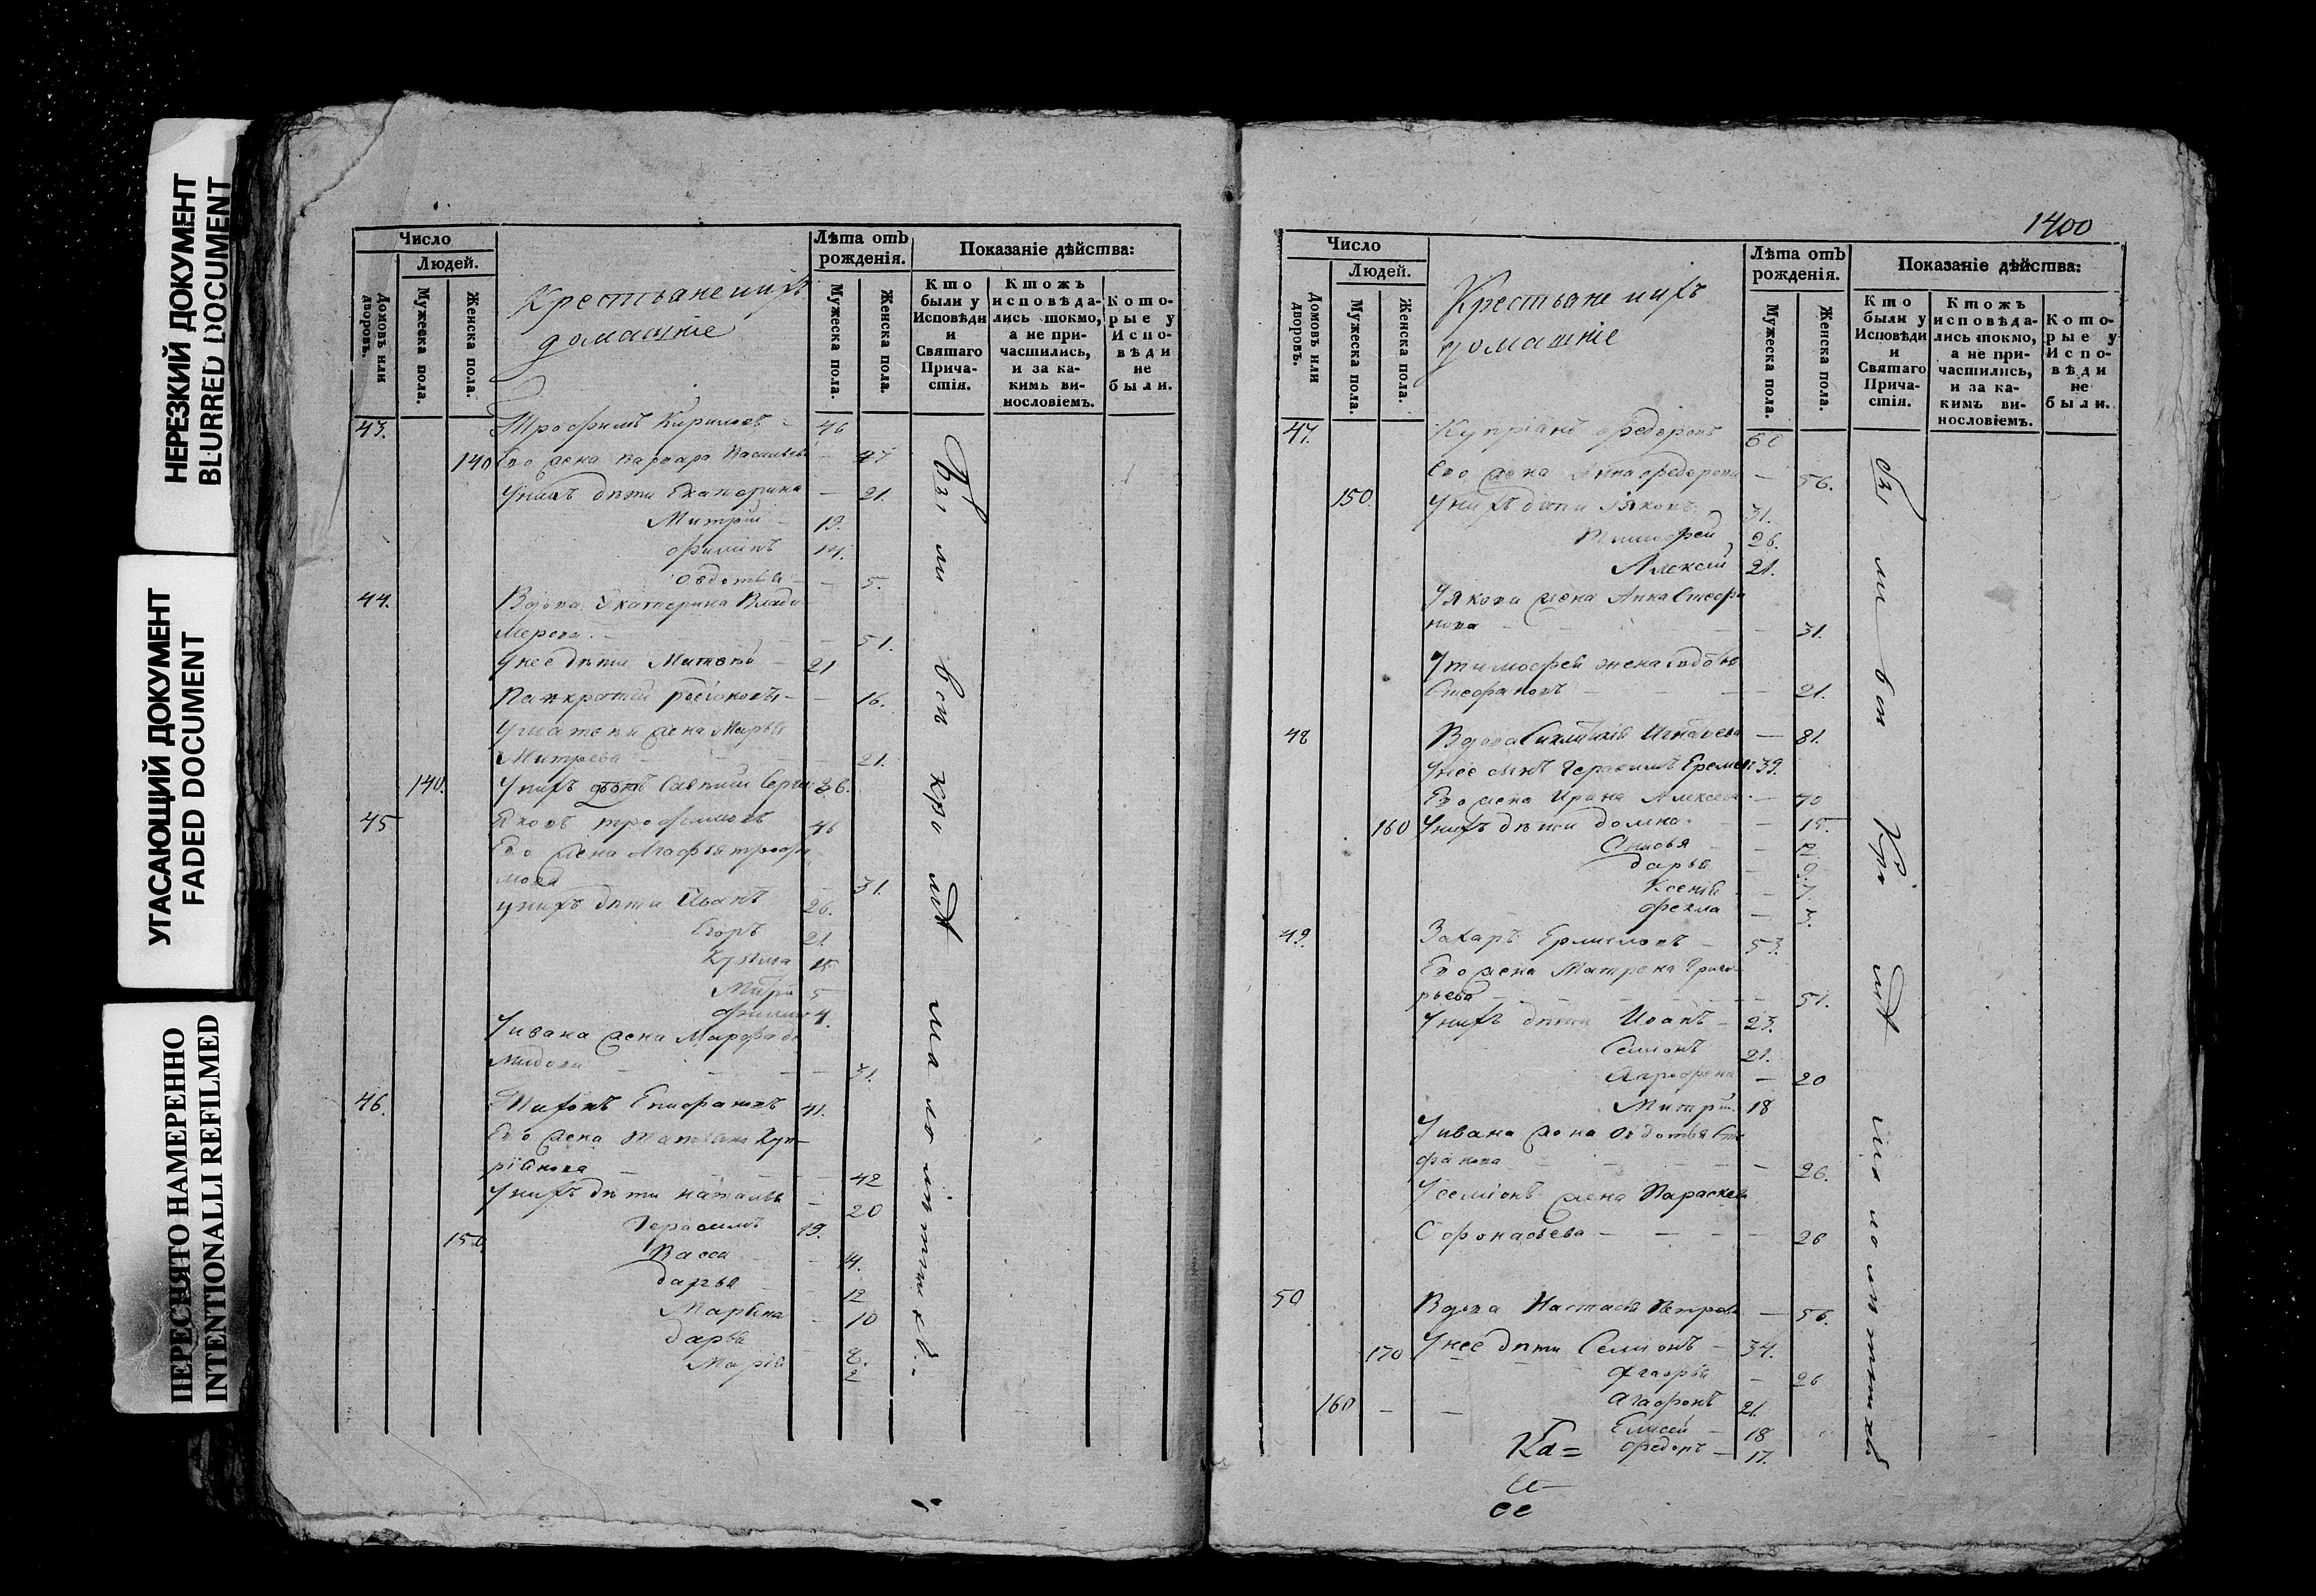 НЕРЕЗКИЙ ДОКУМЕНТ
BLURRED DOCUMENT
УГАСАЮЩИЙ ДОКУМЕНТ
FADED DOCUMENT
ПЕРЕСНЯТО НАМЕРЕННО
INTENTIONALLI REFILMED
Число
Людей.
Домовъ или дворовъ.
Мужеска пола.
Женска пола.
Крестьяне ихъ
домашніе
Лѣта отъ рожденія.
Мужеска пола.
Женска пола.
Показаніе дѣйства:
Кто были у Исповѣди и Святаго Прича-стія.
Ктожъ исповѣда-лись токмо, а не при-частились, и за ка-кимъ ви-нословіемъ.
Кото-рые у Испо-вѣди не были.
43. Трофимъ Кириловъ - 46
140 Его жена Варвара Васильева - 47
У нихъ дѣти Екатерина - 21.
Митрій - 19.
Филипъ 14.
Овдотья - 5.
44. Вдова Екатерина Влади
мерова - 51.
У нее дѣти Матвѣй - 21
Панкратій - 16.
У Матвѣя жена Марья
Митрева - 21.
140. У нихъ 36.
45 Яковъ Трофимовъ 46
Его жена Агафья Трофи
мова - 31.
У нихъ дѣти Иванъ 26.
Егоръ 21.
Кузьма 15
Митрій 5
Филипъ 4.
У Ивана жена Марфа Де
мидова - 31.
46. Тихонъ Епифановъ 41.
Его жена Татьяна Куп-
ріянова - 42
У нихъ дѣти Наталья - 20
Герасимъ 19.
150. Васса - 14.
Дарья - 12
Марьяна - 10
Дарья - 8.
Марія 2
1400
Число
Людей.
Домовъ или дворовъ.
Мужеска пола.
Женска пола.
Крестьяне ихъ
домашніе
Лѣта отъ рожденія.
Мужеска пола.
Женска пола.
Показаніе дѣйства:
Кто были у Исповѣди и Святаго Прича-стія.
Ктожъ исповѣда-лись токмо, а не при-частились, и за ка-кимъ ви-нословіемъ.
Кото-рые у Испо-вѣди не были.
47. Купріанъ Федоровъ 60
Его жена Анна Федорова - 56.
150. У нихъ дѣти Яковъ 31.
Тимофей 26.
Алексій 21.
У Якова жена Анна Стефа
нова - 31.
У Тимофея жена
Стефанова - 21.
48 Вдова Игнатьева - 81.
У нее сынъ Герасимъ Еремеев 39.
Его жена Ирина Алексеева - 40
160 У нихъ дѣти Домна - 15.
- 12
Дарья - 9.
Ксенія - 7.
Фекла - 3.
49. Захаръ - 53.
Его жена Матрена Григо
рьева - 51.
У нихъ дѣти Иванъ - 23.
Семіонъ 21.
Агрофена - 20
Митрій 18
У Ивана жена Овдотья Сте
фанова - 26.
У Семіона жена Параскева
Софонасьева - 26
50 Вдова Настасья Петрова - 56.
170 У нее дѣти Семіонъ - 34.
- 26
160 Агафонъ 21.
Елисей - 18
Федоръ - 17.
Ка=
Были вси кромѣ малолѣтныхъ
Были вси кромѣ малолѣтныхъ